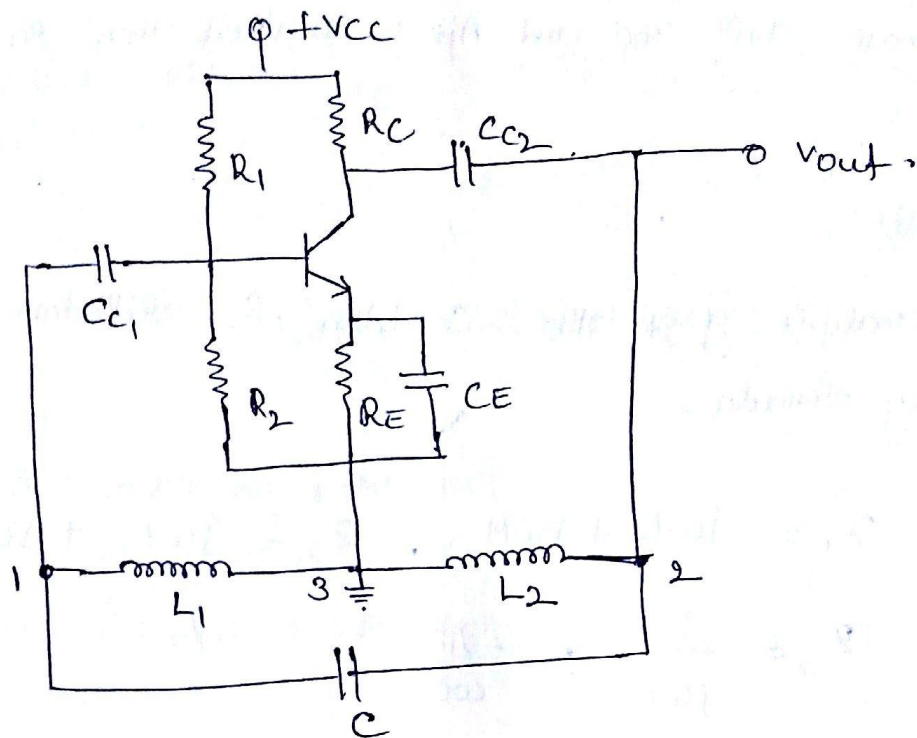 +VCC
R1
RC
CC2
Vout.
CC1
R2
RE
CE
1
L1
3
L2
2
C